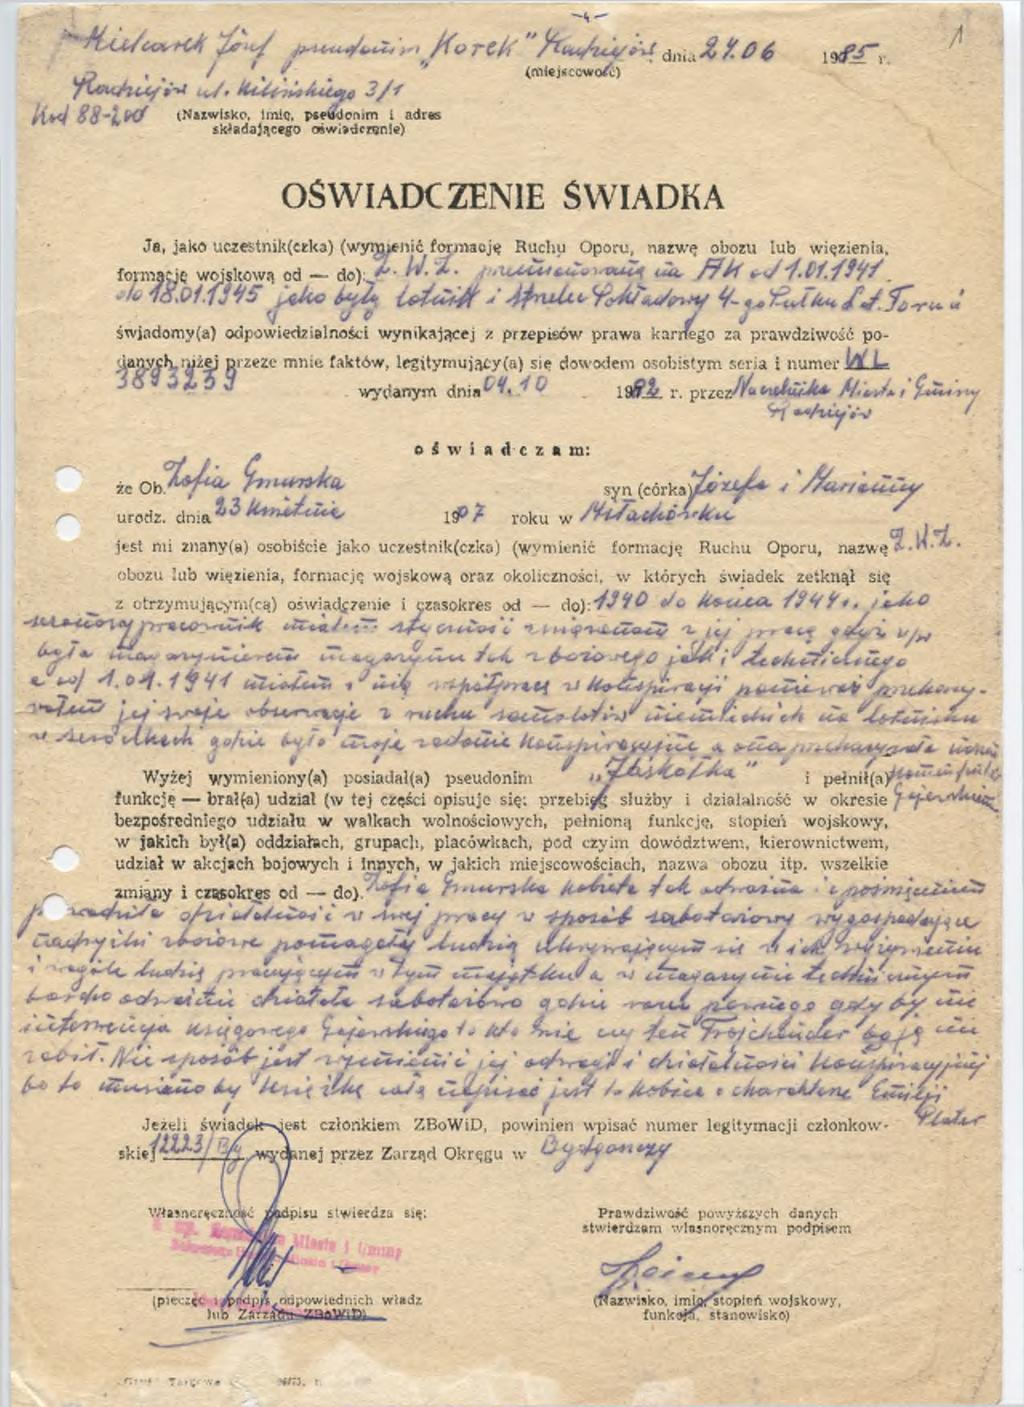 -4-
1
Mielcarek Józef pseudonim „Korek" Radziejów, dnia 24.06 1985 r.
(miejscowość)
Radziejów ul. Kilińskiego 3/1
Kod 88-200 (Nazwisko, imię, pseudonim i adres
składającego oświadczenie)
OŚWIADCZENIE ŚWIADKA
Ja, jako uczestnik(czka) (wymienić formację Ruchu Oporu, nazwę obozu lub więzienia,
formację wojskową od — do): Z.W.Z. na AK od 1.01.1941
do 18.01.1945 jako były lotnik i strzelec 4-go Pułku Lot. Toruń
świadomy(a) odpowiedzialności wynikającej z przepisów prawa karnego za prawdziwość po-
danych niżej przeze mnie faktów, legitymujący(a) się dowodem osobistym seria i numer WL
3893239 wydanym dnia 04.10 1982 r. przez Naczelnika Miasta i Gminy
Radziejów
oświadczam:
że Ob. Zofia Gmurska syn (córka) Józefa i Marianny
urodz. dnia 23 kwietnia 1907 roku w
jest mi znany(a) osobiście jako uczestnik(czka) (wymienić formację Ruchu Oporu, nazwę Z.W.Z.
obozu lub więzienia, formację wojskową oraz okoliczności, w których świadek zetknął się
z otrzymującym(cą) oświadczenie i czasokres od — do): 1940 do końca 1944 r. jako
pracownik miałem styczność z jej pracą gdyż w/w
była magazynierem magazynu tak zbożowego jak i technicznego
a od 1.01.1941 miałem z nią współpracę w konspiracji ponieważ przekazy-
wałem jej swoje obserwacje z ruchu samolotów niemieckich na lotnisku
w gdzie było moje zadanie konspiracyjne a ona przekazywała
Wyżej wymieniony(a) posiadał(a) pseudonim „Jaskółka" i pełnił(a)
funkcję — brał(a) udział (w tej części opisuje się: przebieg służby i działalność w okresie Gajewskiemu
bezpośredniego udziału w walkach wolnościowych, pełnioną funkcję, stopień wojskowy,
w jakich był(a) oddziałach, grupach, placówkach, pod czyim dowództwem, kierownictwem,
udział w akcjach bojowych i innych, w jakich miejscowościach, nazwa obozu itp. wszelkie
zmiany i czasokres od — do). Zofia Gmurska kobieta tak odważna i z poświęceniem
prowadziła działalność w swej pracy w sposób sabotażowy
nadwyżki zbożowe pomagała ludzią ukrywającym się w ich wyżywieniu
i wogóle ludzią pracującym w tym majątku a w magazynu technicznym
bardzo odważnie działała sabotażowo gdzie razu pewnego gdyby nie
interwencja księgowego Gajewskiego to kto wie czy ten
zabił. Nie sposób jest wymienić jej odwagi i działalności konspiracyjnej
bo to musiano by książkę całą napisać jest to kobieta o charakterze Emilji
Plater
Jeżeli świadek jest członkiem ZBoWiD, powinien wpisać numer legitymacji członkow-
skiej 12223/By wydanej przez Zarząd Okręgu w Bydgoszczy
Własnoręczność podpisu stwierdza się:
Miasta i Gminy
(pieczęć i podpis odpowiednich władz
lub Zarządu ZBoWiD)
Prawdziwość powyższych danych
stwierdzam własnoręcznym podpisem
(Nazwisko, imię, stopień wojskowy,
funkcja, stanowisko)